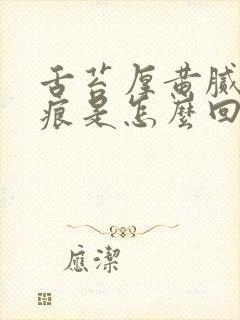 舌苔厚黄腻
痕是怎麼回
應潔